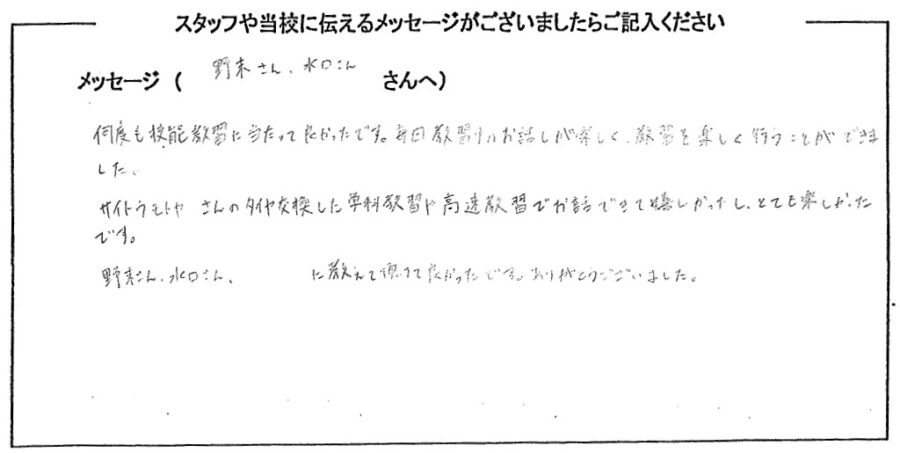 スタッフや当校に伝えるメッセージがございましたらご記入ください
メッセージ ( 野末さん、水口さん さんへ)
何度も技能教習に当たって良かったです。毎回教習中のお話しが楽しく、教習を楽しく行うことができま
した。
サイトウモトヤ さんのタイヤ交換した学科教習や高速教習でお話できて嬉しかったし、とても楽しかった
です。
野末さん、水口さん、 に教えて頂けて良かったです。ありがとうございました。